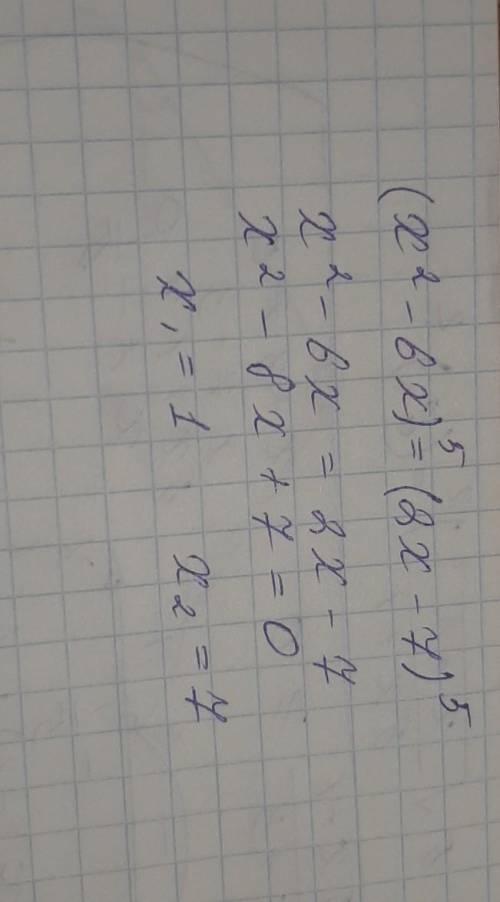 (x² - 6x)⁵ = (2x - 7)⁵
x² - 6x = 2x - 7
x² - 8x + 7 = 0
x₁ = 1 x₂ = 7